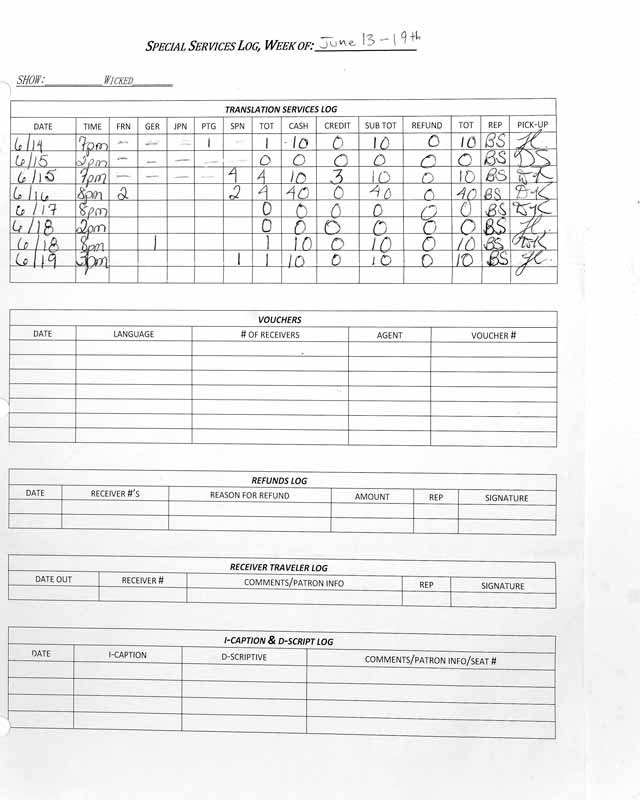 SPECIAL SERVICES LOG, WEEK OF: June 13-19th
SHOW: WICKED
TRANSLATION SERVICES LOG
DATE TIME FRN GER JPN PTG SPN TOT CASH CREDIT SUB TOT REFUND TOT REP PICK-UP
6/14 7pm — — — 1 — 1 10 0 10 0 10 BS
6/15 2pm — — — — — 0 0 0 0 0 0 BS DS
6/15 7pm — — — — 4 4 10 3 10 0 10 BS DK
6/16 8pm 2 2 4 40 0 40 0 40 BS DK
6/17 8pm 0 0 0 0 0 0 BS DK
6/18 2pm 0 0 0 0 0 0 BS
6/18 8pm 1 1 10 0 10 0 10 BS DK
6/19 3pm 1 1 10 0 10 0 10 BS
VOUCHERS
DATE LANGUAGE # OF RECEIVERS AGENT VOUCHER #
REFUNDS LOG
DATE RECEIVER #'S REASON FOR REFUND AMOUNT REP SIGNATURE
RECEIVER TRAVELER LOG
DATE OUT RECEIVER # COMMENTS/PATRON INFO REP SIGNATURE
I-CAPTION & D-SCRIPT LOG
DATE I-CAPTION D-SCRIPTIVE COMMENTS/PATRON INFO/SEAT #